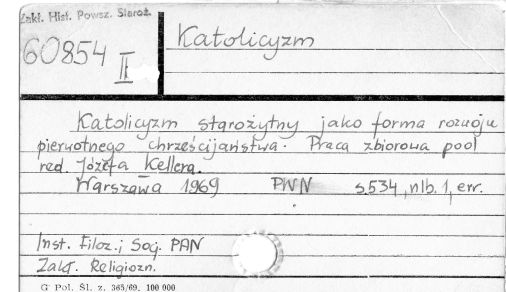 Zakł. Hist. Powsz. Staroż.
60854
II
Katolicyzm
Katolicyzm starożytny jako forma rozwoju
pierwotnego chrześcijaństwa. Praca zbiorowa pod
red. Józefa Kellera.
Warszawa 1969 PWN s.534, nlb. 1, err.
Inst. Filoz. i Soc. PAN
Zakł. Religiozn.
G Pol. Śl. z. 365/69. 100 000